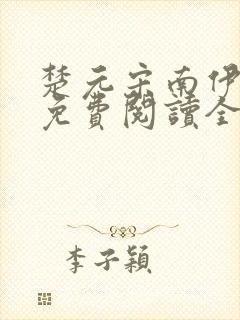 楚元宗南伊
免費閱讀全
李子穎